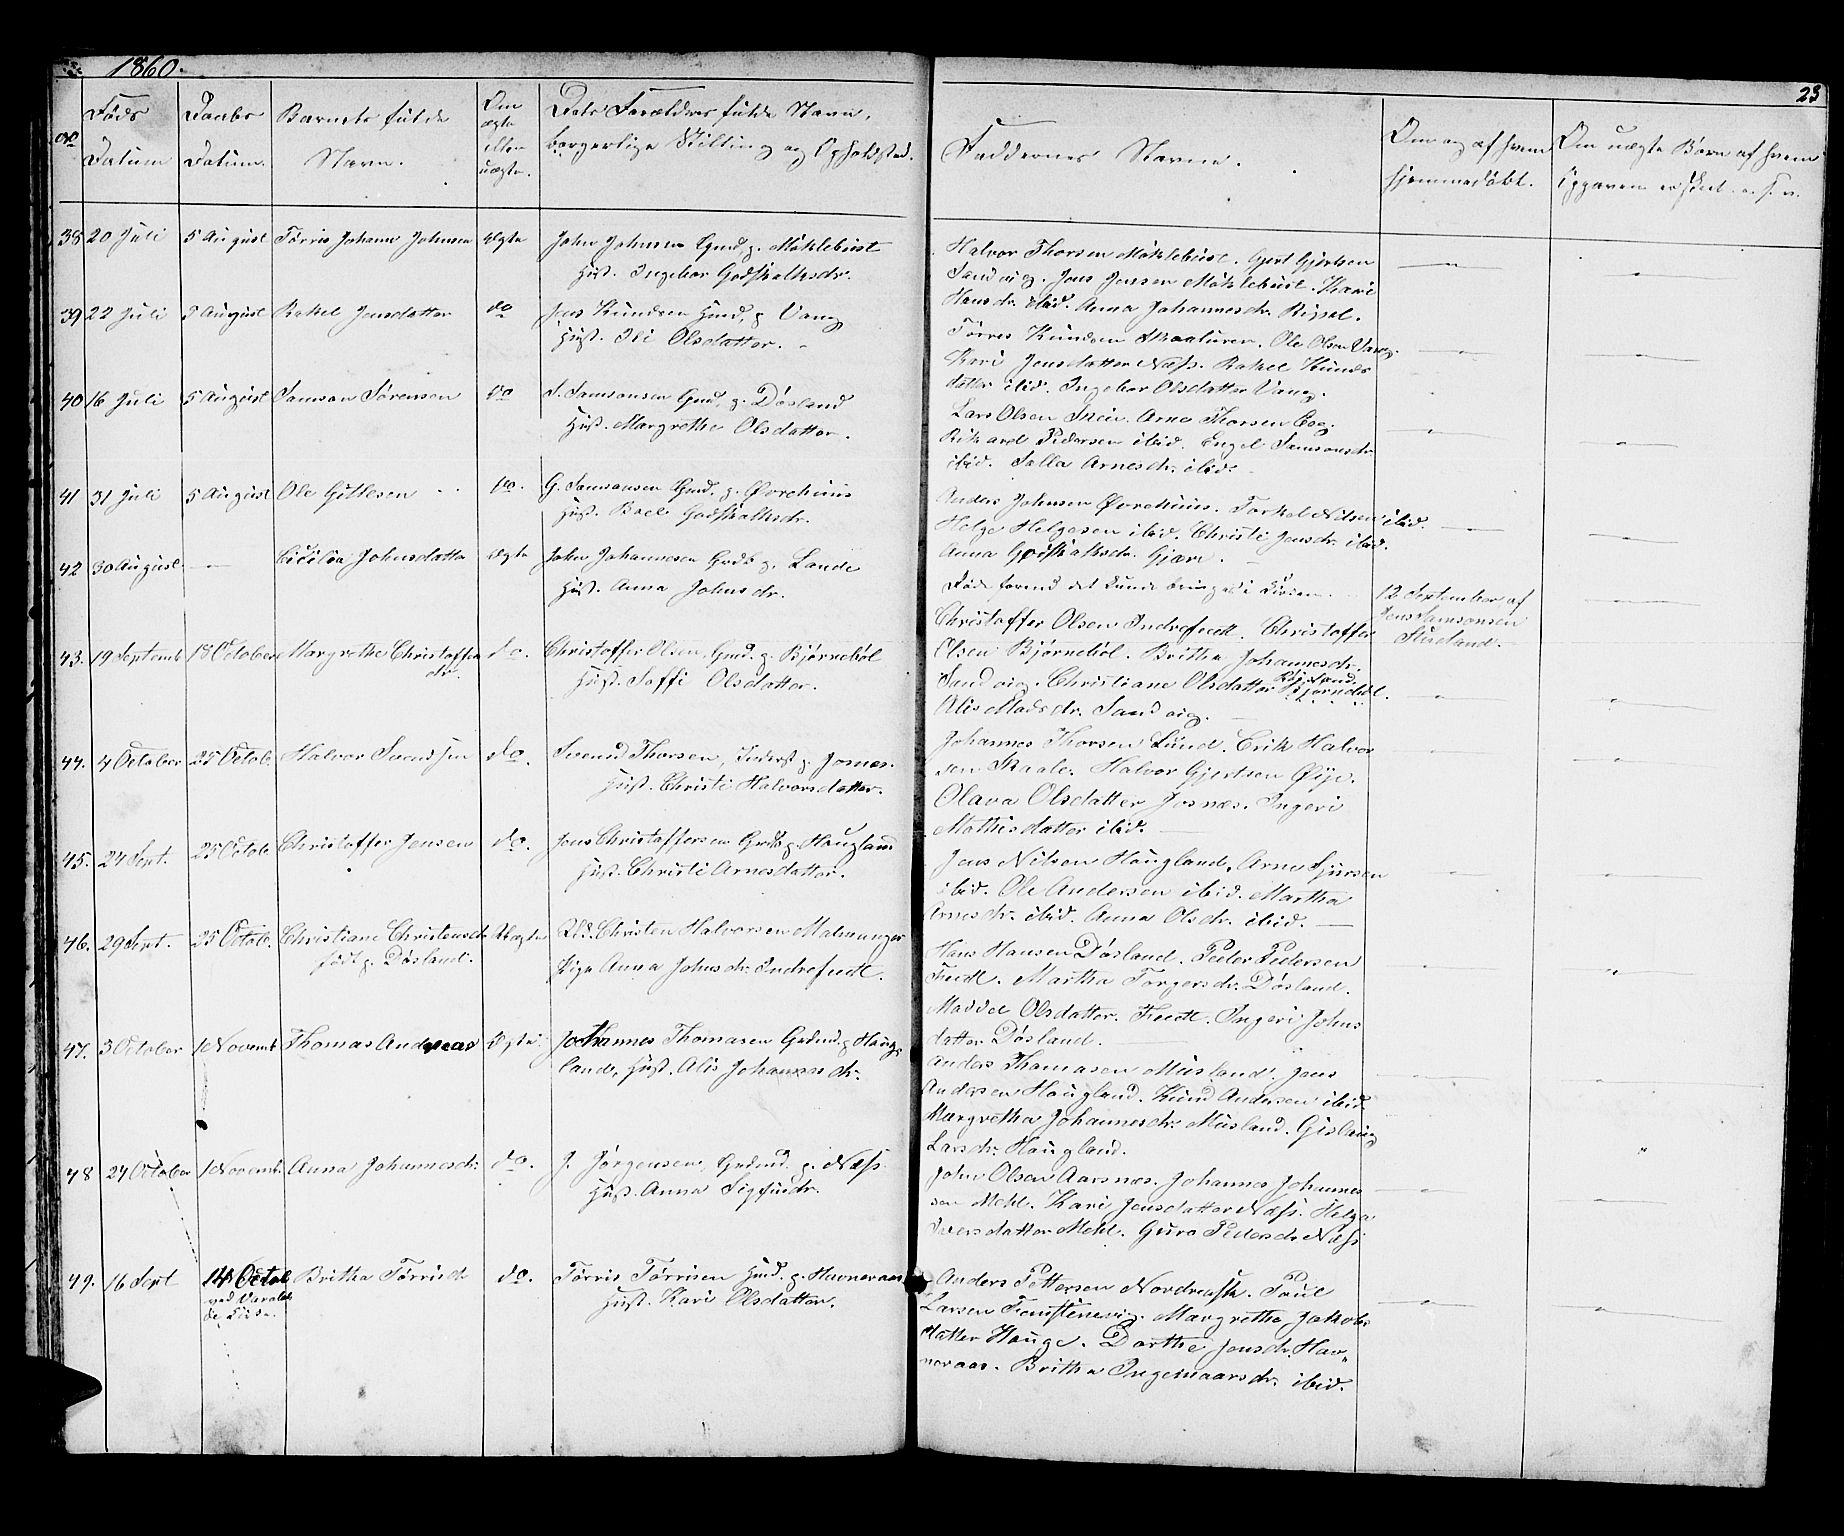 1860.
23
No
Føds Datum
Daabs Datum.
Barnets fulde Navn.
Om ægte eller uægte.
Dets Forældres fulde Navn, borgerlige Stilling og Opholdsted.
Faddernes Navne.
Om og af hvem hjemmedøbt.
Om uægte Børn af hvem Opgaven er skeet o. s. v.
38 20 Juli 5 August Tørris Johann Johnsen Ægte John Johnsen Gmd. p. Møklebust
Hust. Ingebor Godskalksdr.
Halvor Thorsen Møklebust. Gjert Gjertsen
Sandvig. Jens Jensen Møklebust. Kari
Hansdr. ibid. Anna Johannesdr.
39 22 Juli 5 August Rakel Jensdatter do Jens Knudsen Hmd. p Vang
Hust. Ili Olsdatter.
Tørres Knudsen Skaaluren. Ole Olsen Vang.
Kari Jensdatter Næss. Rakel Knuds
datter ibid. Ingebor Olsdatter Vang.
40 16 Juli 5 August Samson Sørensen do S. Samsonsen Gmd. p. Døsland
Hust. Margrethe Olsdatter.
Lars Olsen Arne Thorsen
Rikard Pedersen ibid. Engel Samsonsdr.
ibid. Salla Arnesdr. ibid.
41 31 Juli 5 August Ole Gutlesen do. G. Samsonsen Gmd. p. Øvrehuus
Hust. Godskalksdr.
Anders Johnsen Øvrehuus. Torkel Nilsen ibid.
Helge Helgesen ibid. Christi Jensdr. ibid.
Anna Godskalksdr. Gjære.
42 30 August — Cicilia Johnsdatter Ægte John Johannesen Grdb p. Lande
Hust. Anna Johnsdr.
Døde forend det kunde bringes i Kirken.
12 September af
Jens Samsonsen
43. 19 Septemb. 18 October Margrethe Christoffer
dr. do. Christoffer Olsen, Gmd. p. Bjørnebøl
Hust. Soffi Olsdatter.
Christoffer Olsen Indrefuedt. Christoffer
Olsen Bjørnebøl. Britha Johannesdr.
Sandvig. Christiane Olsdatter Bjørnebøl.
Alis Madsdr. Sandvig.
44. 4 October 25 Octob. Halvor Svendsen do. Svend Thorsen, Inderst p. Josnæs.
Hust. Christi Halvorsdatter.
Johannes Thorsen Lund. Erik Halvor
sen Skaale. Halvor Gjertsen Øye.
Olava Olsdatter Josnæs. Ingeri
Mathisdatter ibid.
45. 24 Sept. 25 Octob. Christoffer Jensen do. Jens Christoffersen Grdb p. Haugland
Hust. Christi Arnesdatter.
Jens Nilsen Haugland. Arne Sjursen
ibid. Ole Andersen ibid. Martha
Arnesdr. ibid. Anna Olsdr. ibid.
46. 29 Sept. 25 Octob. Christiane Christensdr.
født p. Døsland. Uægte Ubd. Christen Halvorsen Malmanger
Pige Anna Johnsdr. Indrefuedt.
Hans Hansen Døsland. Peder Pedersen
Fuedt. Martha Torgersdr. Døsland.
Maddel Olsdatter. Fuedt. Ingeri Johns
datter Døsland.
47. 3 October 1 Novemb. Thomas Andreas Ægte. Johannes Thomasen Grdmd. p Haug
land, Hust. Alis Johannesdr.
Anders Thomasen Musland. Jens
Andersen Haugland. Knud Andersen ibid.
Margretha Johannesdr. Musland. Gislaug
Larsdr. Haugland.
48 24 October 1 Novemb. Anna Johannesdr. do. J. Jørgensen, Grdmd. p. Næss.
Hust. Anna
John Olsen Aarsnæs. Johannes Johannes
sen Mehl. Kari Jensdatter Næss. Helga
Iversdatter Mehl. Guro Pedersdr. Næss
49. 16 Sept 14 Octob.
ved Varalds
øe Kirke. Britha Tørrisdr. do. Tørris Tørrisen Hmd. p. Havneraas
Hust. Kari Olsdatter.
Anders Pettersen Nordrevik. Poul
Larsen Margrethe Jakobs
datter Hauge. Dorthe Jensdr. Hav-
neraas. Britha Ingemaarsdr. ibid.